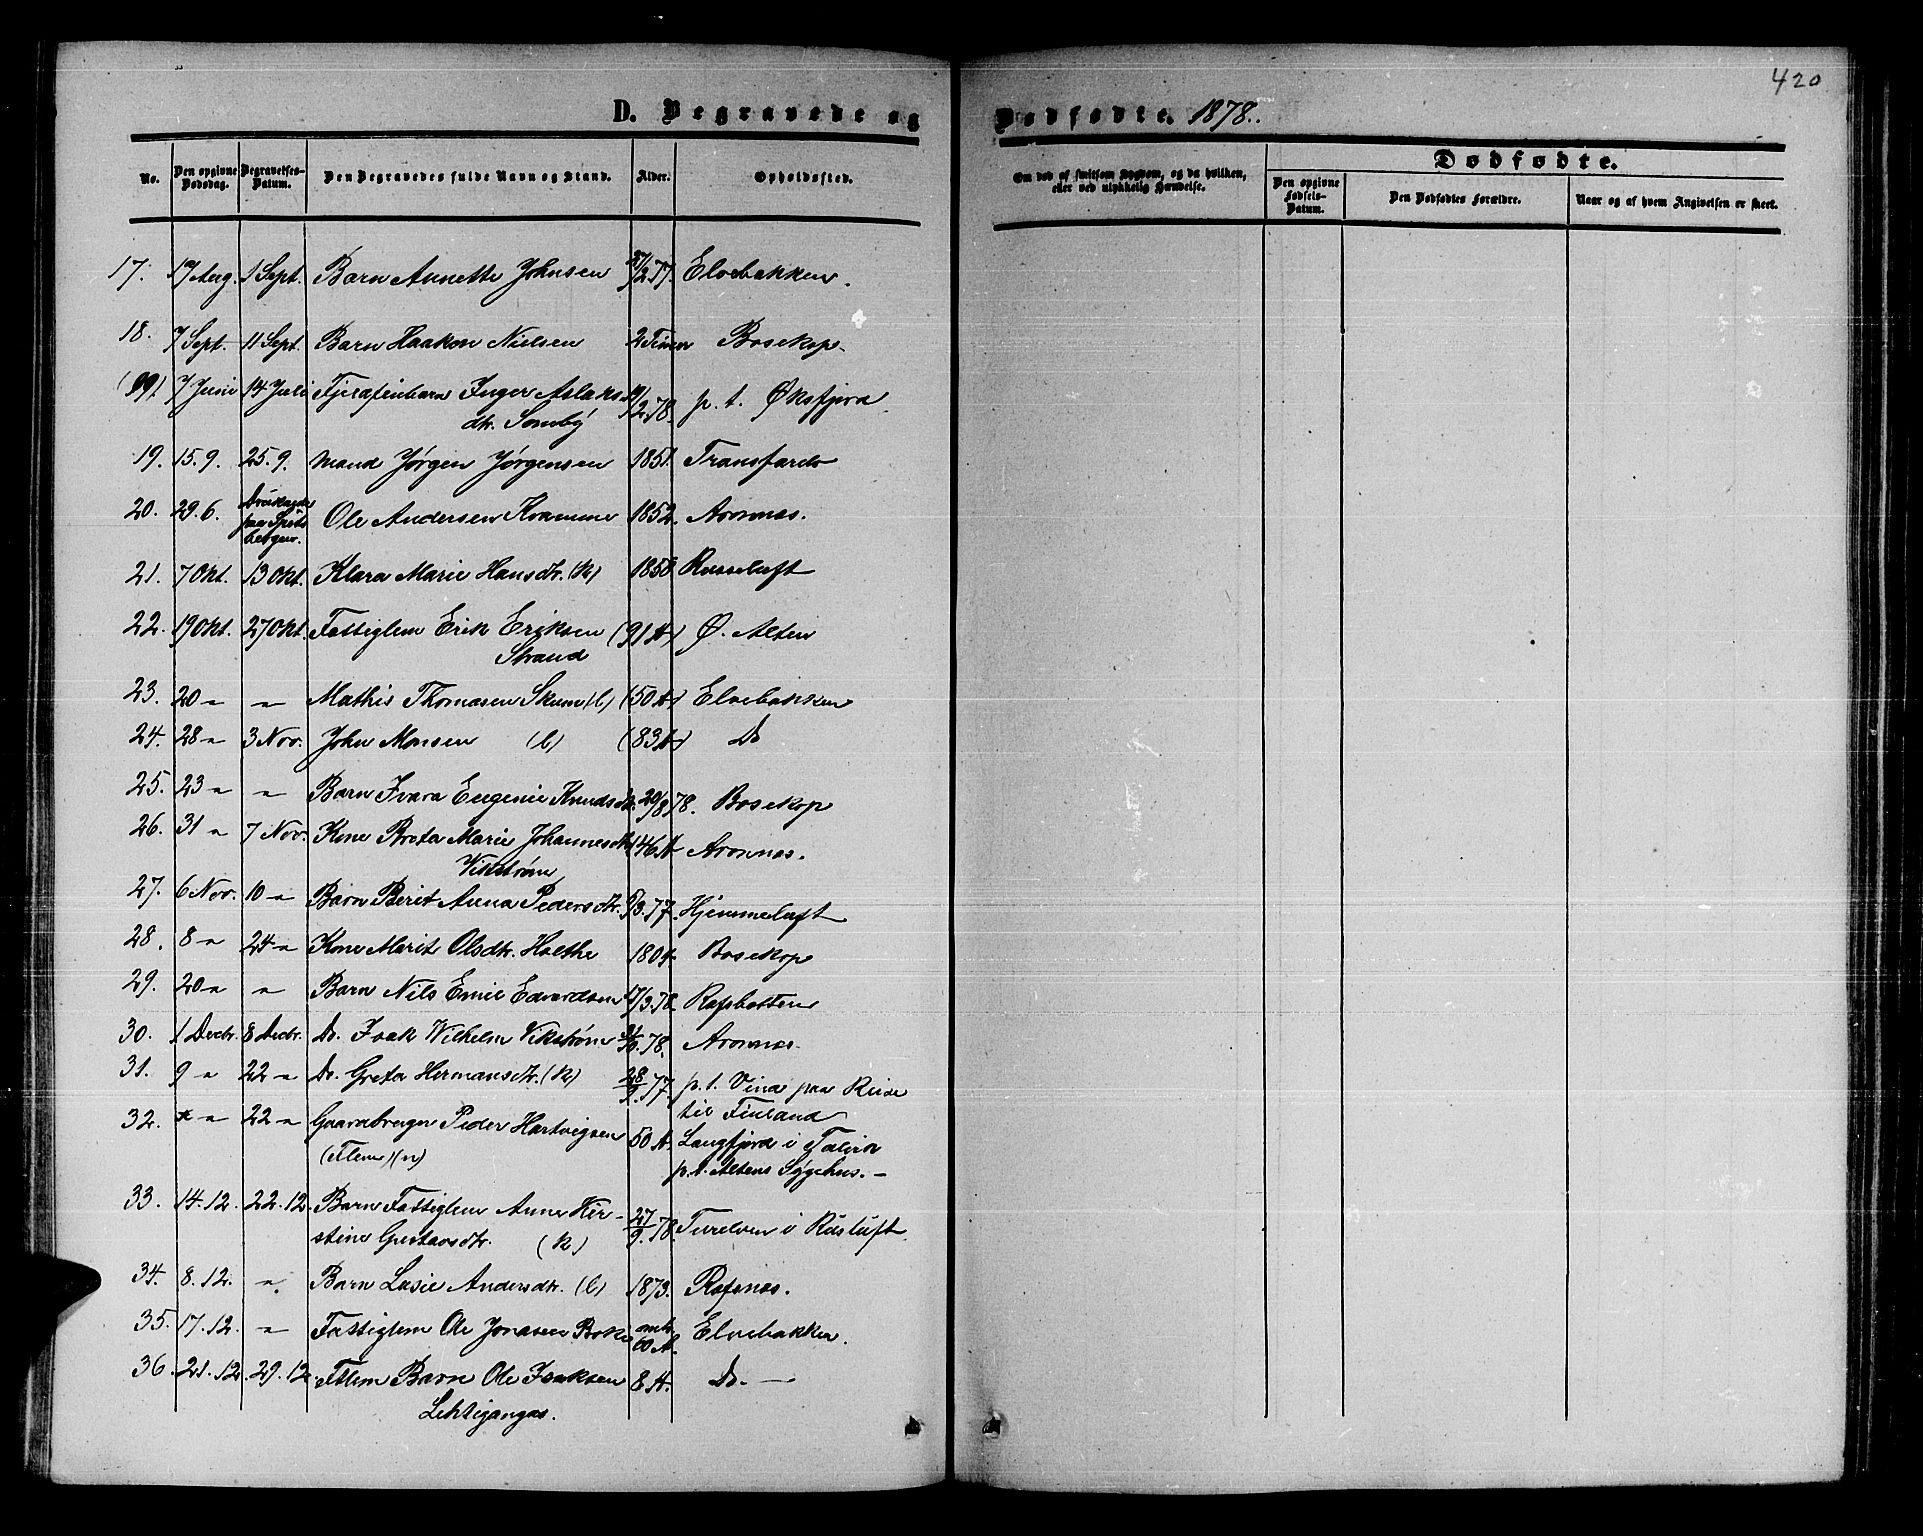 420
D. Begravede og Dødfødte. 1878.
No. Den opgivne Dødsdag. Begravelses-Datum. Den Begravedes fulde Navn og Stand. Alder. Opholdssted. Om død af smitsom Sygdom, og da hvilken, eller ved ulykkelig Hændelse.
Dødfødte.
Den opgivne Fødsels-Datum. Den Dødfødtes Forældre. Naar og af hvem Angivelsen er skeet.
17. 17 Aug. 1 Sept. Barn Annette Johnsen /2.77. Elvebakken.
18. 7 Sept. 11 Sept. Barn Haakon Nielsen 2 Timer Bosekop
7 Juni 14 Juli Fjeldfinbarn Inger Aslaks- 19/2.78. p. t. Øksfjord
dtr. Somby
19. 15.9. 25.9. Mand Jørgen Jørgensen 1851. Transfarelv
20. 29.6. Druknede paa Spitsbergen. Ole Andersen Kvamme 1852. Aronnæs.
21. 7 Okt. 13 Okt. Klara Marie Hansdtr. (k) 1850 Russeluft
22. 19 Okt. 27 Okt. Fattiglem Erik Eriksen (91 A) Ø. Alten
Strand
23. 20 " " Mathis Thomasen Skum (l) (50 A) Elvebakken
24. 28 " 3 Nov. John Monsen (l) (83 A) Do
25. 23 " " Barn Ivara Eugenie Knudsdtr. 20/8 78. Bosekop
26. 31 " 7 Nov. Kone Breta Marie Johannesdtr 46 A Aronnæs.
Vikstrøm
27. 6 Nov. 10 " Barn Berit Anna Pedersdtr. /3.77. Hjemmeluft
28. 8 " 24 " Kone Marit Olsdtr. Holthe 1804. Bosekop
29. 20 " " Barn Nils Emil Edvardsen 17/3.78. Rafsbotten
30. 1 Decbr. 8 Decbr. Do. Isak Wilhelm Vikstrøm /10.78. Aronnæs
31. 9 " 22 " Do. Greta Hermansdtr. (k) 28/9.77. p. t. Vina paa Reise
til Finland
32. " 22 " Gaardbruger Peder Hartvigsen 50 A. Langfjord i Talvik
(Flem) (n) p. t. Altens Sygehus.—
33. 14.12. 22.12. Barn Fattiglem Anne Kir-
stine Gustavsdtr. (k) 27/9.78. Turelven i Rusluft
34. 8.12. " Barn Lasie Andersdtr. (l) 1873. Rafsnæs.
35. 17.12. " Fattiglem Ole Jonasen Boke omtr. 60 A. Elvebakken.
36. 21.12. 29.12. Ftlem Barn Ole Isaksen 8 A. Do.—
Lehtigangas.